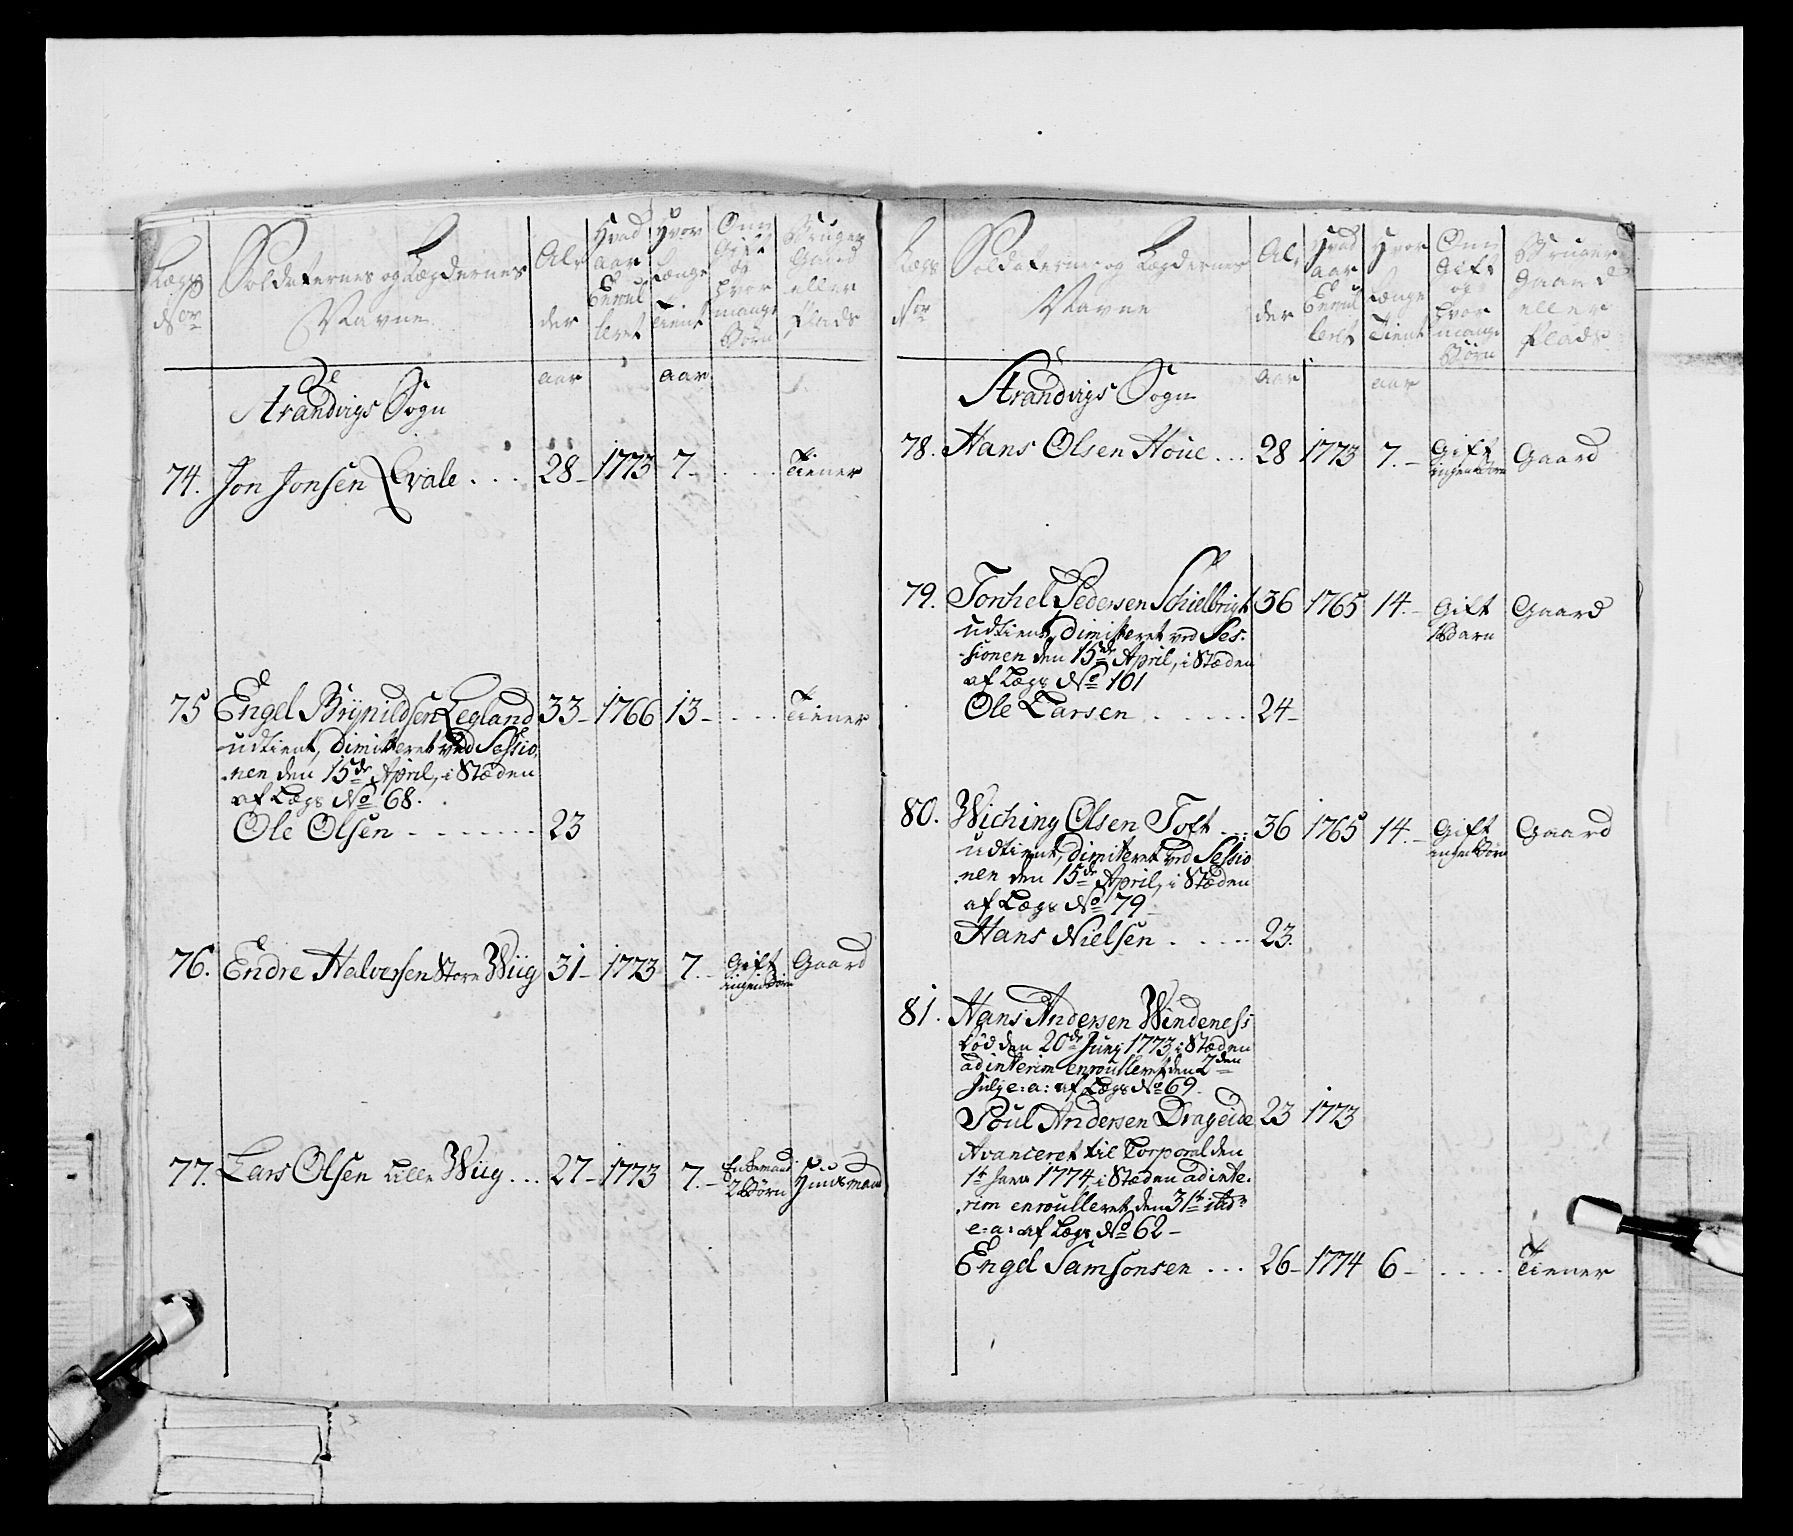 Lægs No | Soldaternes og Lægdernes Navne | Alder | Hvad aar Enroulleret | Hvor Længe Tient | Om Gift og hvor mange Børn | Bruger Gaard eller Plads
aar | aar
Strandvigs Sogn
74. Jon Jonsen Qvale . . . 28 - 1773 7 - . . . . Tiener
75 Engel Brynildsen Legland 33 - 1766 13 - . . . . Tiener
udtient, Dimitteret ved Sessio,
nen den 15de April, i Stæden
af Lægs No 68.
Ole Olsen - - - - - - - 23
76. Endre Halvorsen Store Wiig 31 - 1773 7. - Gift ingen Børn Gaard
77. Lars Olsen Lille Wiig . . . 27 - 1773 7. - Enkemand 2 Børn Huusmand
Lægs No | Soldaternes og Lægdernes Navne | Alder | Hvad aar Enroulleret | Hvor Længe Tient | Om Gift og hvor mange Børn | Bruger Gaard eller Plads
aar | aar
Strandvigs Sogn
78. Hans Olsen Houe . . . 28 1773 7. - Gift ingen Børn Gaard
79. Torchel Pedersen Schielbrigt 36 1765 14. - Gift 1 Barn Gaard
udtient, Dimitteret ved Ses-
sionen den 15de April, i Stæden
af Lægs No 101
Ole Larsen . . . . . . 24 -
80. Wiching Olsen Toft . . . 36 1765 14. - Gift ingen Børn Gaard
udtient, Dimiteret ved Sessio
nen den 15de April, i Stæden
af Lægs No 79
Hans Nielsen . . . . . 23.
81. Hans Andersen Windeness
død den 20de Junj 1773, i Stæden
ad interim enroulleret den 2den
Julj e: a: af Lægs No 69.
Poul Andersen Drageide 23 1773
Avanceret til Corporal den
1te Janr 1774, i Stæden ad inte.
rim enroulleret den 31te itdr
e: a: af Lægs No 62 -
Engel Samsonsen . . . 26 - 1774 6 - . . . . Tiener